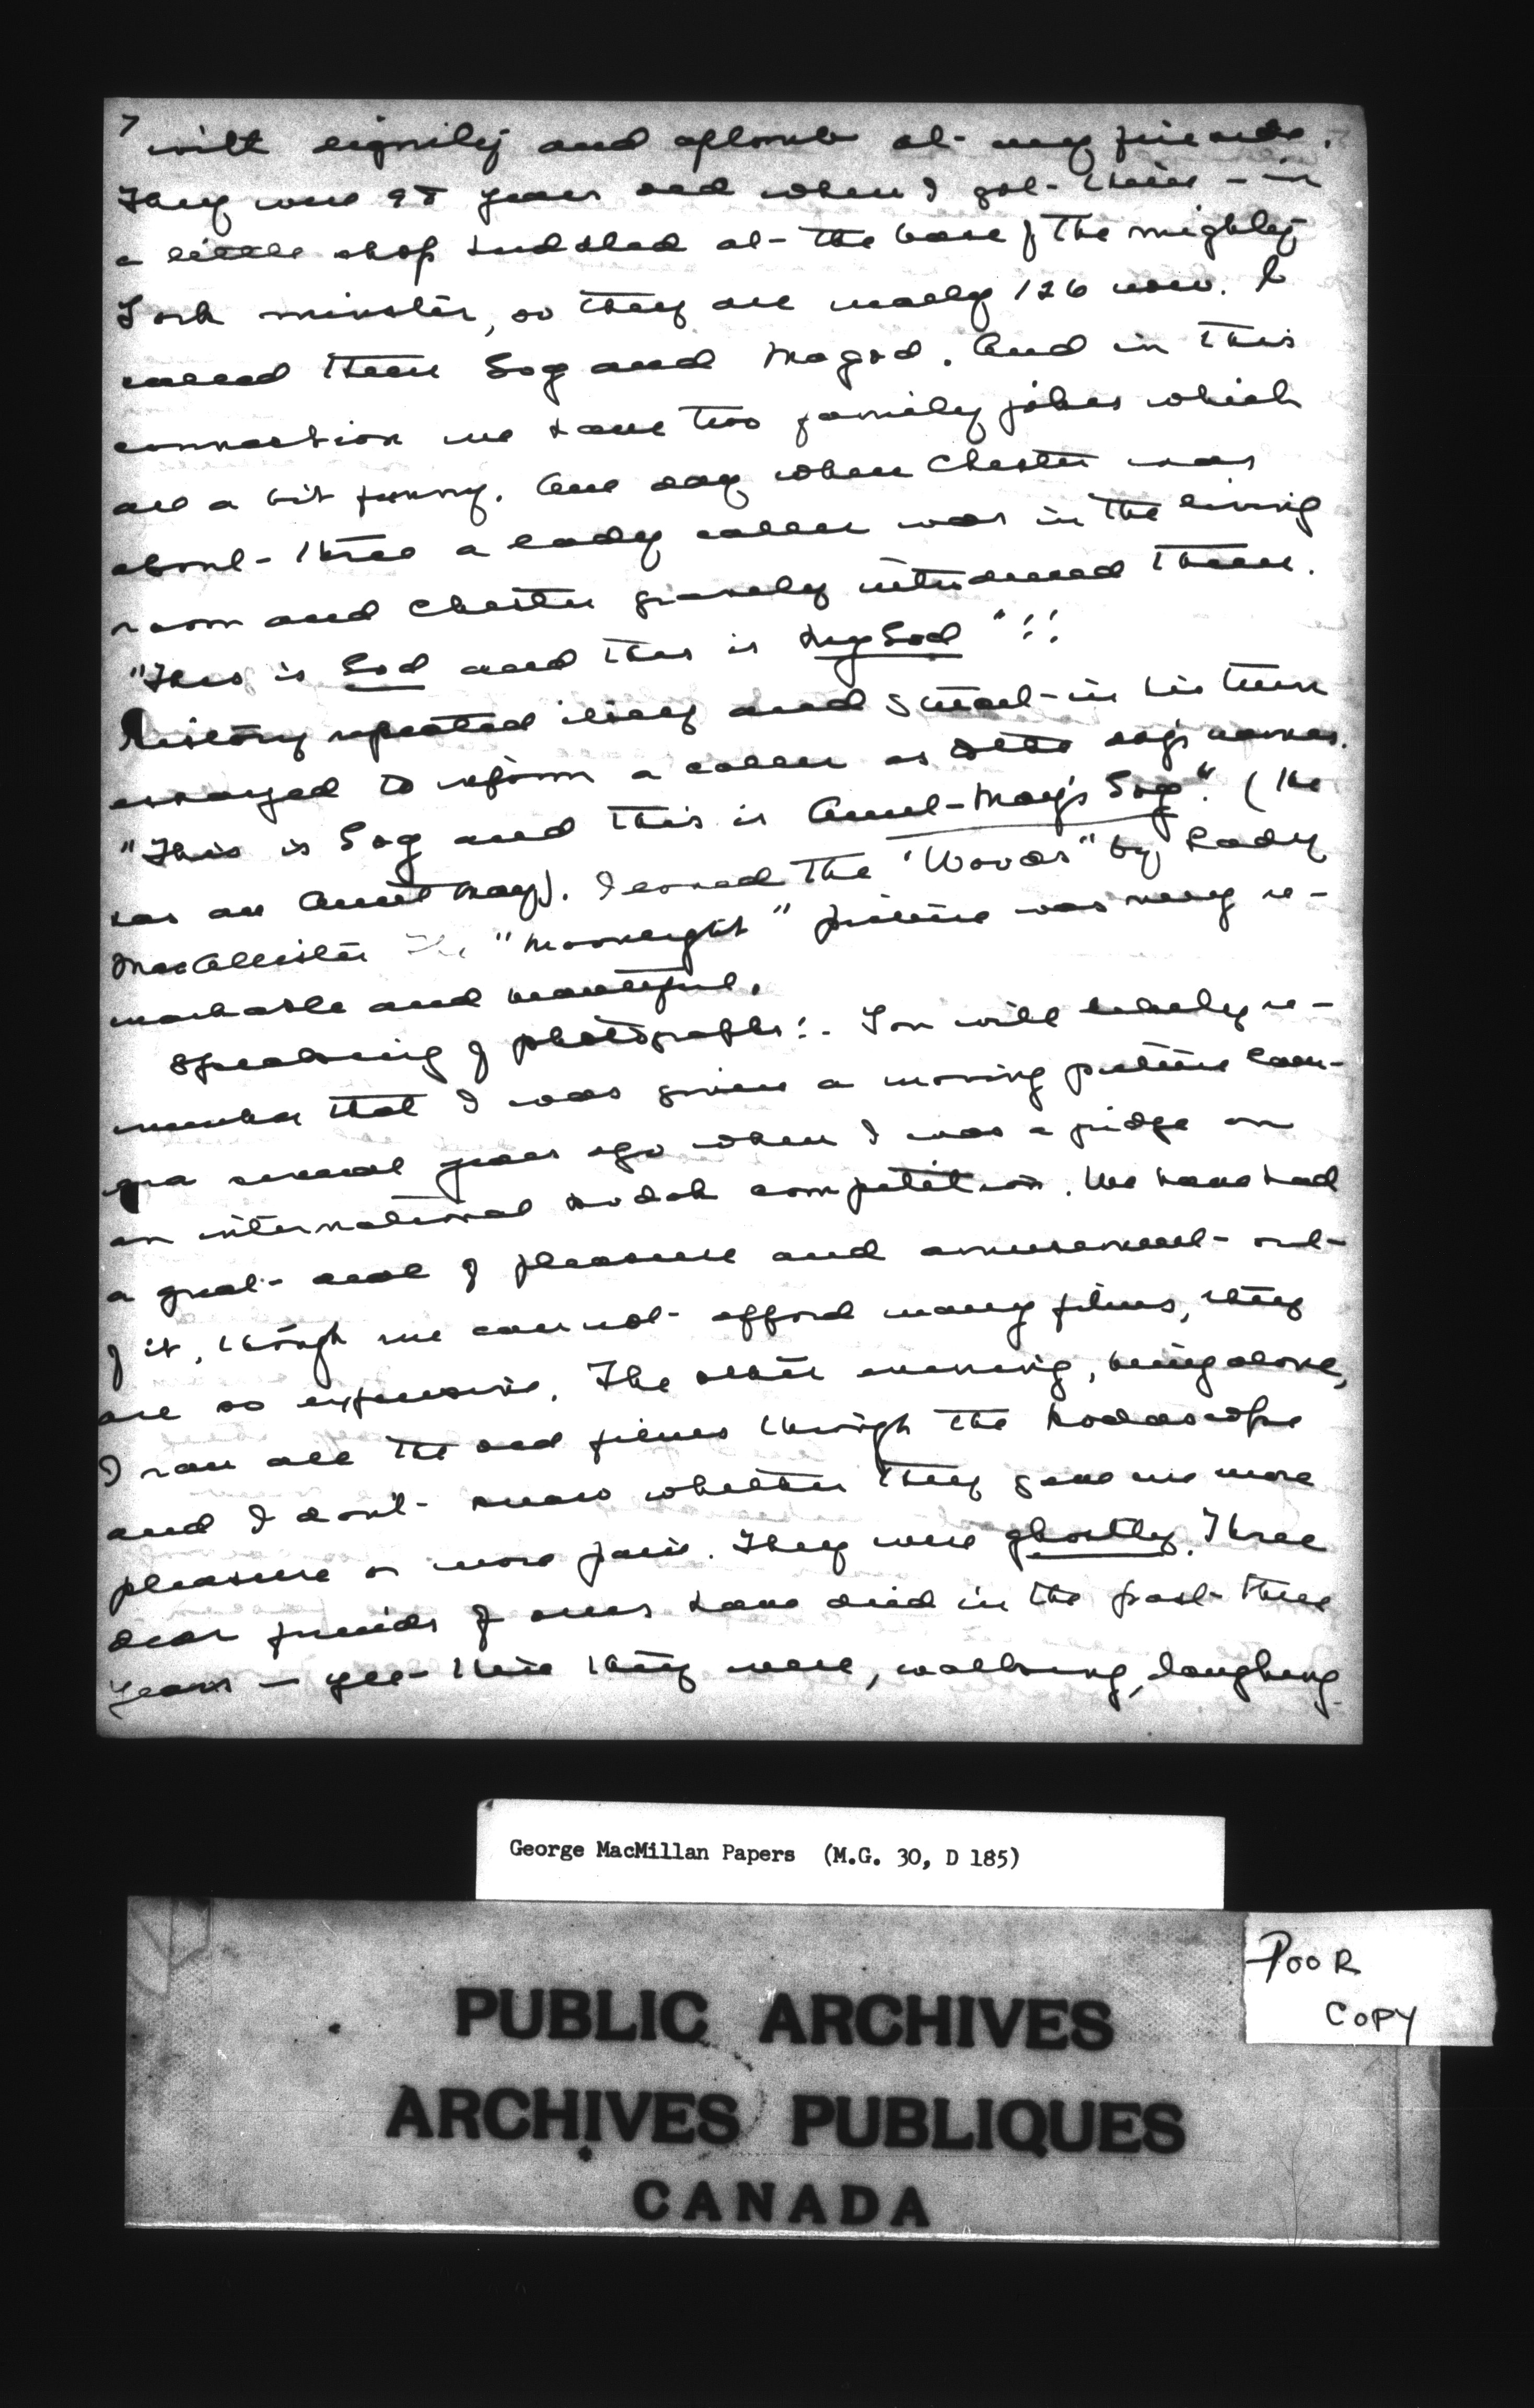 7
with dignity and aplomb at my fireside.
They were 98 years old when I got them – in
a little shop huddled at the base of the mighty
York minster, so they are nearly 126 now. I
called them Gog and Magog. And in this
connection we have two family jokes which
are a bit funny. One day when Chester was
about three a lady caller was in the living
room and Chester gravely introduced them.
"This is God and this is My God"!!
History repeated itself and Stuart in his turn
essayed to inform a caller as to the dogs' names.
"This is Gog and this is Aunt May's Gog". (He
has an Aunt May). I loved the "Woods" by Lady
MacAllister The "Moonlight" picture was very re-
markable and beautiful.
Speaking of photographs:- You will likely re-
member that I was given a moving picture cam-
era several years ago when I was a judge on
an international Kodak competition. We have had
a great deal of pleasure and amusement out
of it, though we cannot afford many films, they
are so expensive. The other evening, being alone,
I ran all the old films through the Kodascope
and I don't know whether they gave me more
pleasure or more pain. They were ghostly. Three
dear friends of ours have died in the past three
years – yet there they were, walking, laughing
George MacMillan Papers (M.G. 30, D 185)
POOR
COPY
PUBLIC ARCHIVES
ARCHIVES PUBLIQUES
CANADA